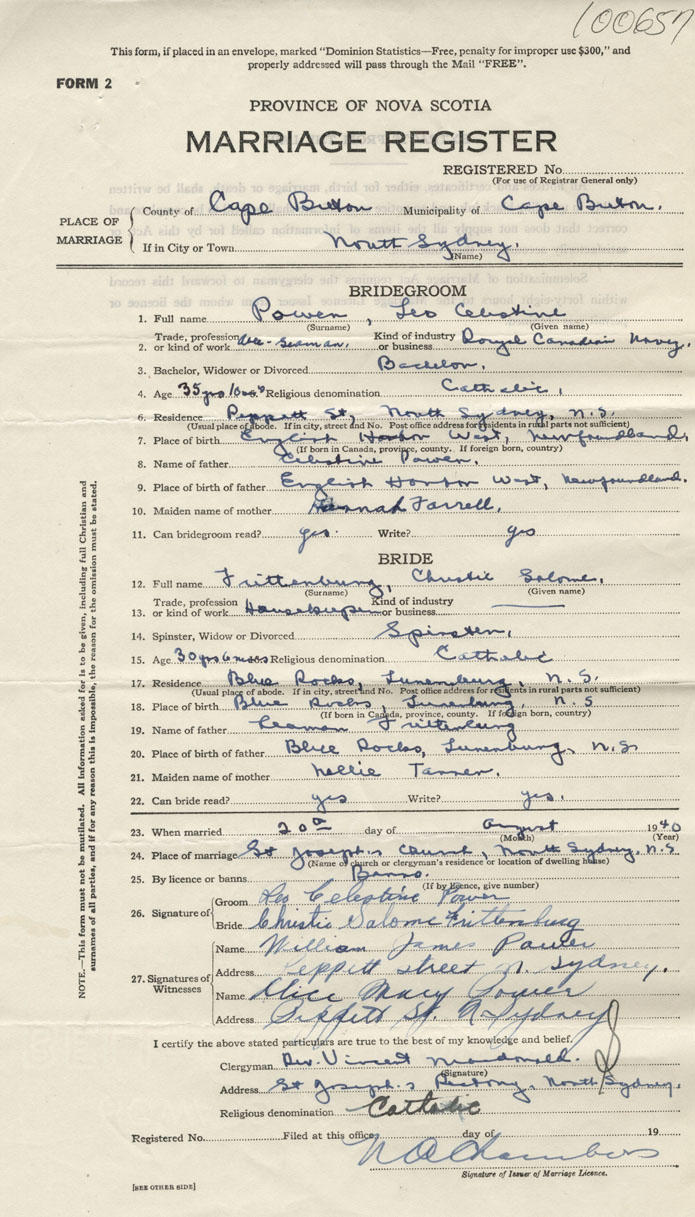 100657
This form, if placed in an envelope, marked "Dominion Statistics—Free, penalty for improper use $300," and
properly addressed will pass through the Mail "FREE".
FORM 2
PROVINCE OF NOVA SCOTIA
MARRIAGE REGISTER
REGISTERED No.
(For use of Registrar General only)
PLACE OF MARRIAGE
County of Cape Breton Municipality of Cape Breton.
If in City or Town North Sydney.
(Name)
BRIDEGROOM
1. Full name Power, Leo Celestine
(Surname) (Given name)
2. Trade, profession or kind of work Able-Seaman. Kind of industry or business Royal Canadian Navy.
3. Bachelor, Widower or Divorced Bachelor.
4. Age 35 yrs 10 Religious denomination Catholic.
6. Residence Peppett St, North Sydney, N.S.
(Usual place of abode. If in city, street and No. Post office address for residents in rural parts not sufficient)
7. Place of birth English Harbor West, Newfoundland.
(If born in Canada, province, county. If foreign born, country)
8. Name of father Celestine Power.
9. Place of birth of father English Harbor West, Newfoundland.
10. Maiden name of mother Hannah Farrell.
11. Can bridegroom read? yes. Write? yes
BRIDE
12. Full name Frittenburg, Christie Salome.
(Surname) (Given name)
13. Trade, profession or kind of work Housekeeper Kind of industry or business
14. Spinster, Widow or Divorced Spinster.
15. Age 30 yrs 6 mos Religious denomination Catholic
17. Residence Blue Rocks, Lunenburg, N.S.
(Usual place of abode. If in city, street and No. Post office address for residents in rural parts not sufficient)
18. Place of birth Blue Rocks, Lunenburg, N.S
(If born in Canada, province, county. If foreign born, country)
19. Name of father Frittenburg
20. Place of birth of father Blue Rocks, Lunenburg, N.S.
21. Maiden name of mother Nellie Tanner.
22. Can bride read? yes Write? yes.
23. When married 20th day of August 1940
(Month) (Year)
24. Place of marriage St Joseph's Church, North Sydney, N.S
(Name of church or clergyman's residence or location of dwelling house)
25. By licence or banns Banns.
(If by licence, give number)
26. Signature of
Groom Leo Celestine Power
Bride Christie Salome Frittenburg
27. Signatures of Witnesses
Name William James Power
Address Peppitt street N. Sydney.
Name Alice Mary Power
Address Peppett St. N Sydney
I certify the above stated particulars are true to the best of my knowledge and belief.
Clergyman Rev. Vincent Macdonald.
(Signature)
Address St Joseph's Rectory, North Sydney.
Religious denomination Catholic
Registered No. Filed at this office day of 19
Chambers
Signature of Issuer of Marriage Licence.
[SEE OTHER SIDE]
NOTE.—This form must not be mutilated. All information asked for is to be given, including full Christian and
surnames of all parties, and if for any reason this is impossible, the reason for the omission must be stated.